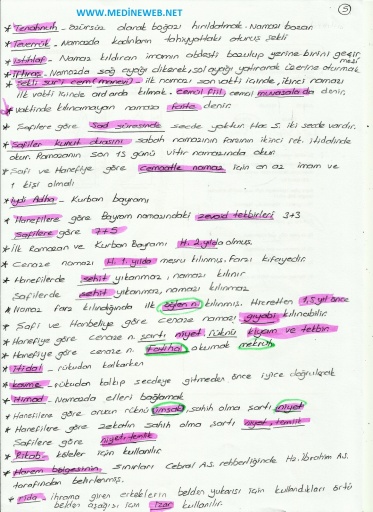 www.MEDİNEWEB.NET
5
* Tenahnuh - özürsüz olarak boğazı hırıldatmak. Namazı bozar
* Teverrük - Namazda kadınların tahiyyattaki oturuş şekli
* İstihlaf - Namaz kıldıran imamın abdesti bozulup yerine birini geçirmesi
* İftiraş - Namazda sağ ayağı dikerek, sol ayağı yatırarak üzerine oturmak.
* Şekli suri cem (manevi) = ilk namazı son vakti içinde, ikinci namazı
ilk vakti içinde ard arda kılmak. cemal fiil, cemal muvasala da denir.
* Vaktinde kılınamayan namaza faite denir.
* Şafilere göre Sad suresinde secde yoktur. Hac S. iki secde vardır.
* Şafiler kunut duasını sabah namazının farzının ikinci rek. itidalinde
okur. Ramazanın son 15 günü vitir namazında okur.
* Şafi ve Hanefiye göre Cemaatle namaz için en az imam ve
1 kişi olmalı
* Iydi Adha - Kurban bayramı
* Hanefilere göre Bayram namazındaki zevaid tekbirleri 3+3
Şafilere göre 7+5
* İlk Ramazan ve Kurban Bayramı H. 2. yılda olmuş.
* Cenaze namazı H. 1. yılda meşru kılınmış. Farzı kifayedir.
* Hanefilerde şehit yıkanmaz, namazı kılınır
Şafilerde şehit yıkanmaz, namazı kılınmaz
* Namaz farz kılındığında ilk öğlen n. kılınmış. Hicretten 1,5 yıl önce
* Şafi ve Hanbeliye göre cenaze namazı gıyabi kılınabilir.
* Hanefiye göre cenaze n. şartı niyet rüknü kıyam ve tekbir
* Hanefiye göre cenaze n. fatiha okumak mekruh
* İtidal - rükudan kalkarken
* kavme - rükudan kalkıp secdeye gitmeden önce iyice doğrulmak
* İtimad - Namazda elleri bağlamak
* Hanefilere göre orucun rüknü imsak, sahih olma şartı niyet
* Hanefilere göre zekatın sahih olma şartı niyet, temlik
Şafilere göre niyet, temlik
* Rikab - köleler için kullanılır
* Harem bölgesinin sınırları Cebrail A.s. rehberliğinde Hz. İbrahim A.s.
tarafından belirlenmiş.
* rida - ihrama giren erkeklerin belden yukarısı için kullandıkları örtü
belden aşağısı için izar kullanılır.